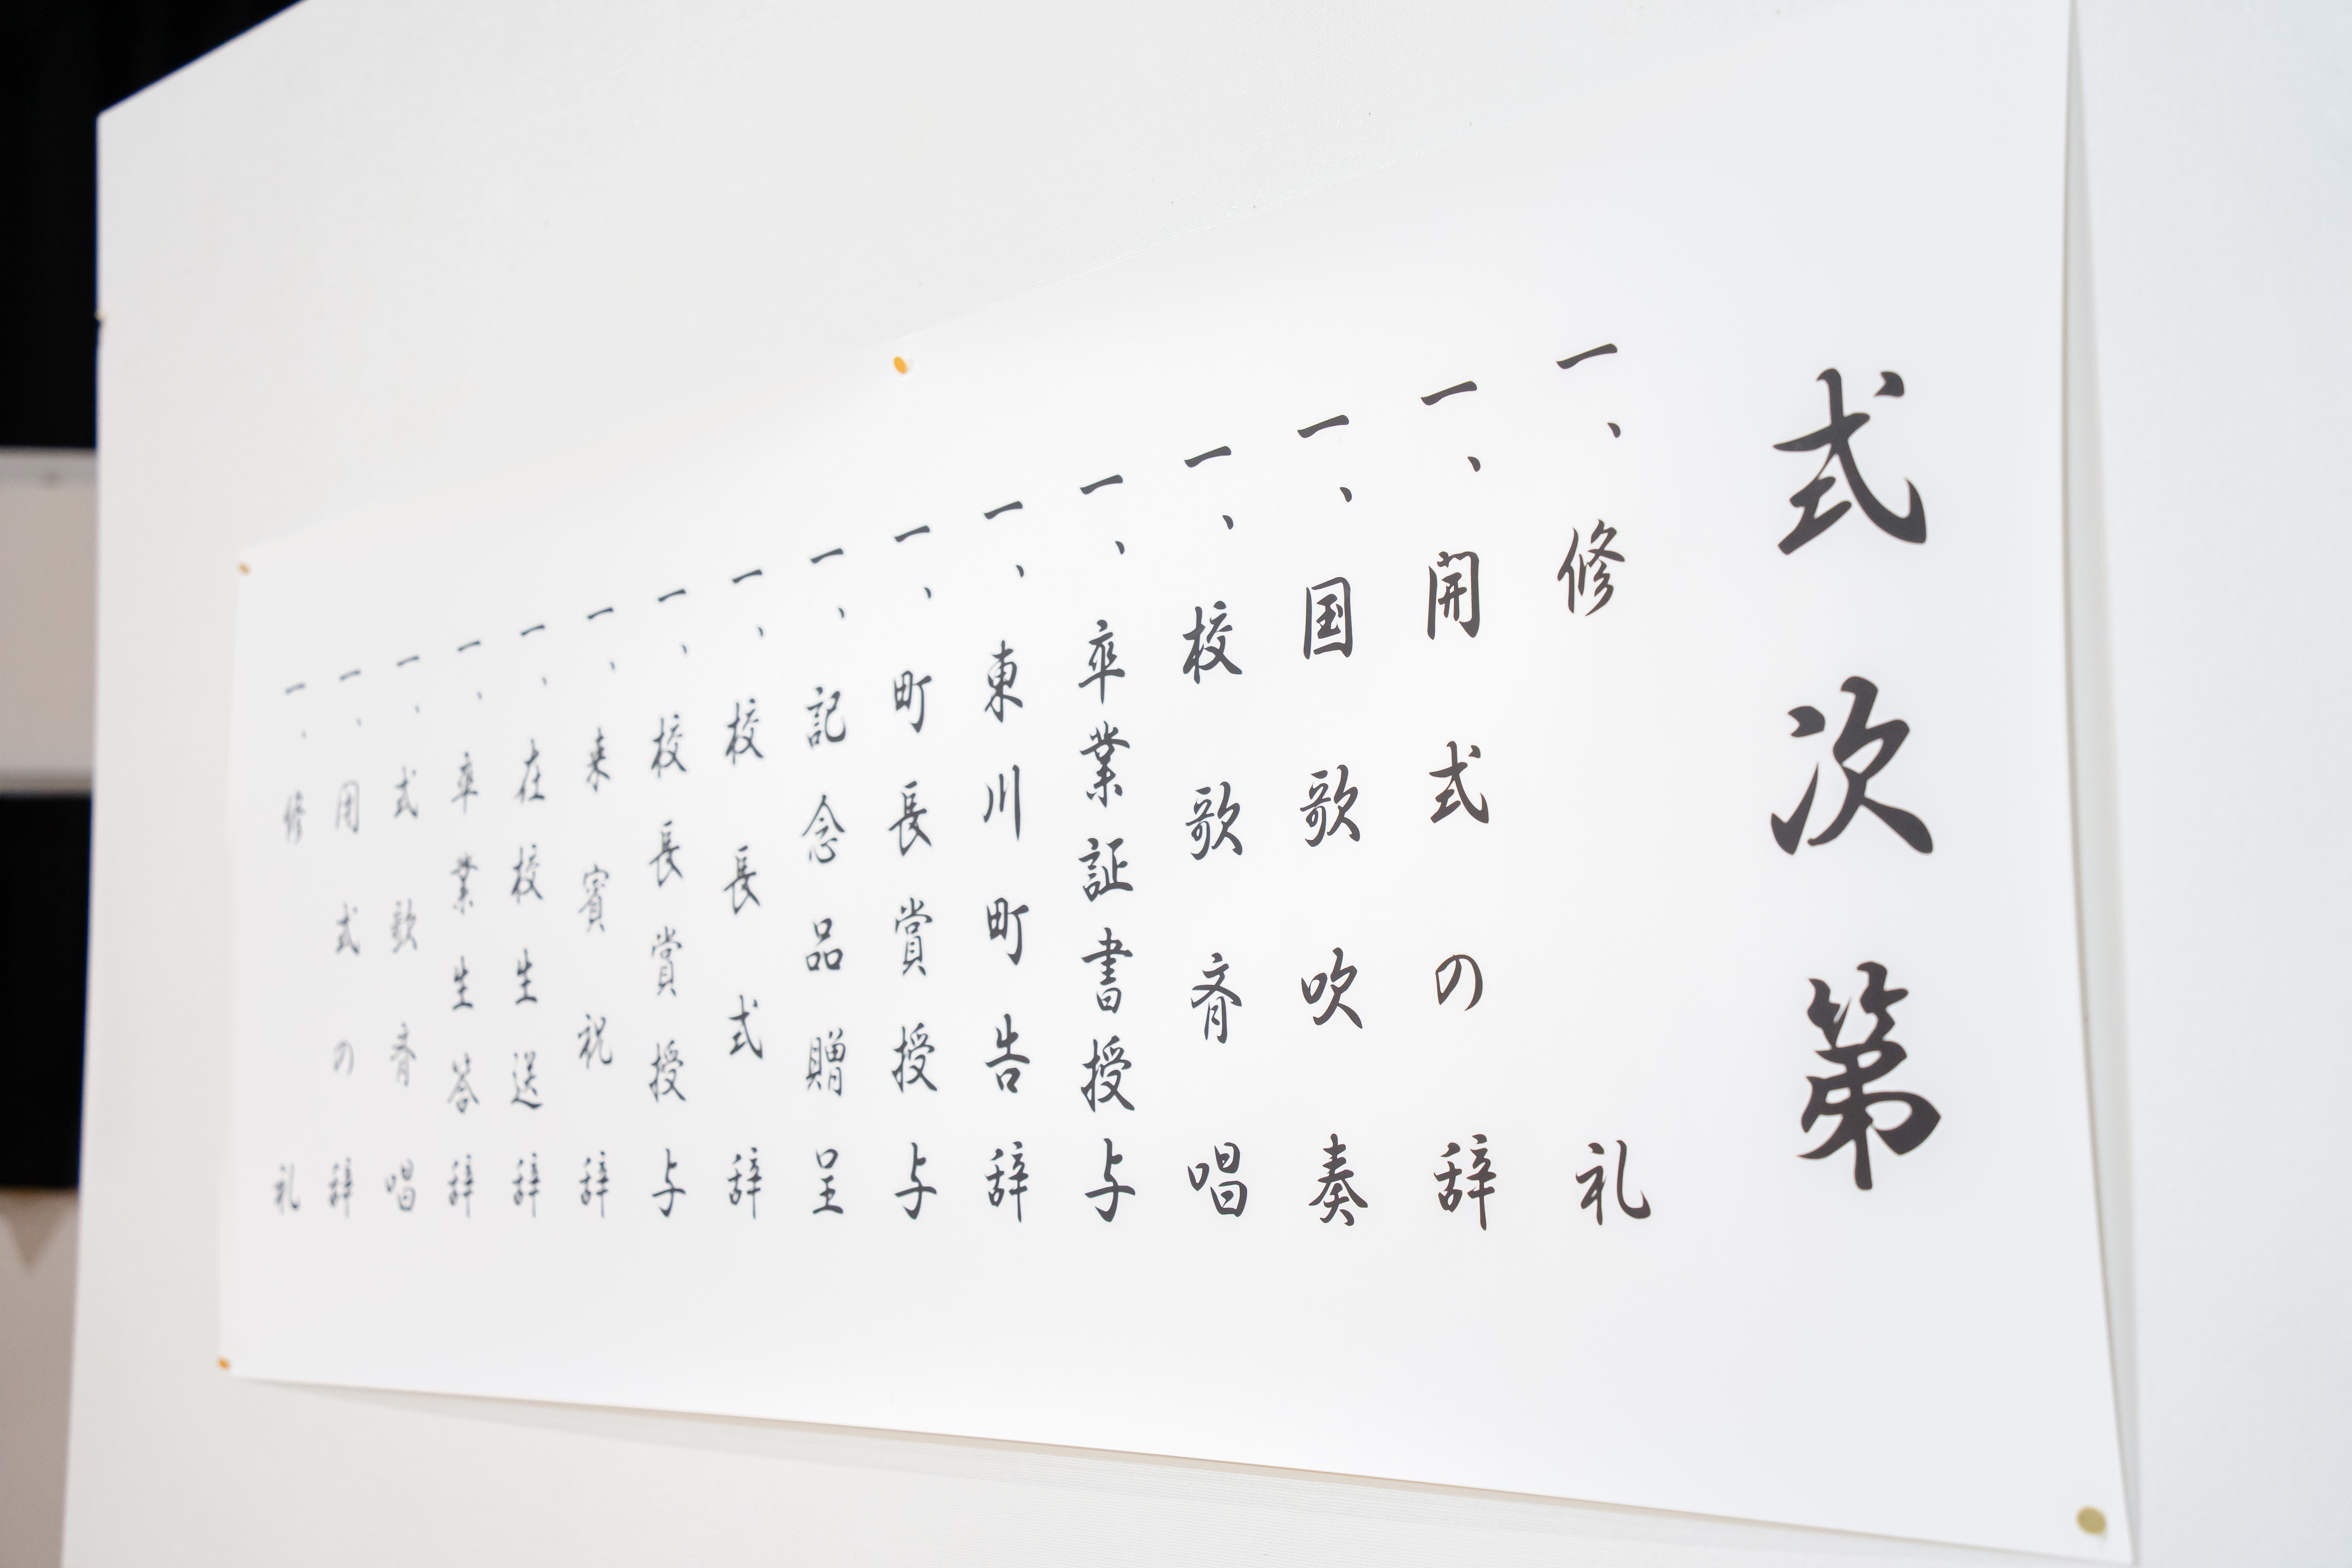 式次第
一、修礼
一、開式の辞
一、国歌吹奏
一、校歌斉唱
一、卒業証書授与
一、東川町告辞
一、町長賞授与
一、記念品贈呈
一、校長式辞
一、校長賞授与
一、来賓祝辞
一、在校生送辞
一、卒業生答辞
一、式歌斉唱
一、閉式の辞
一、修礼